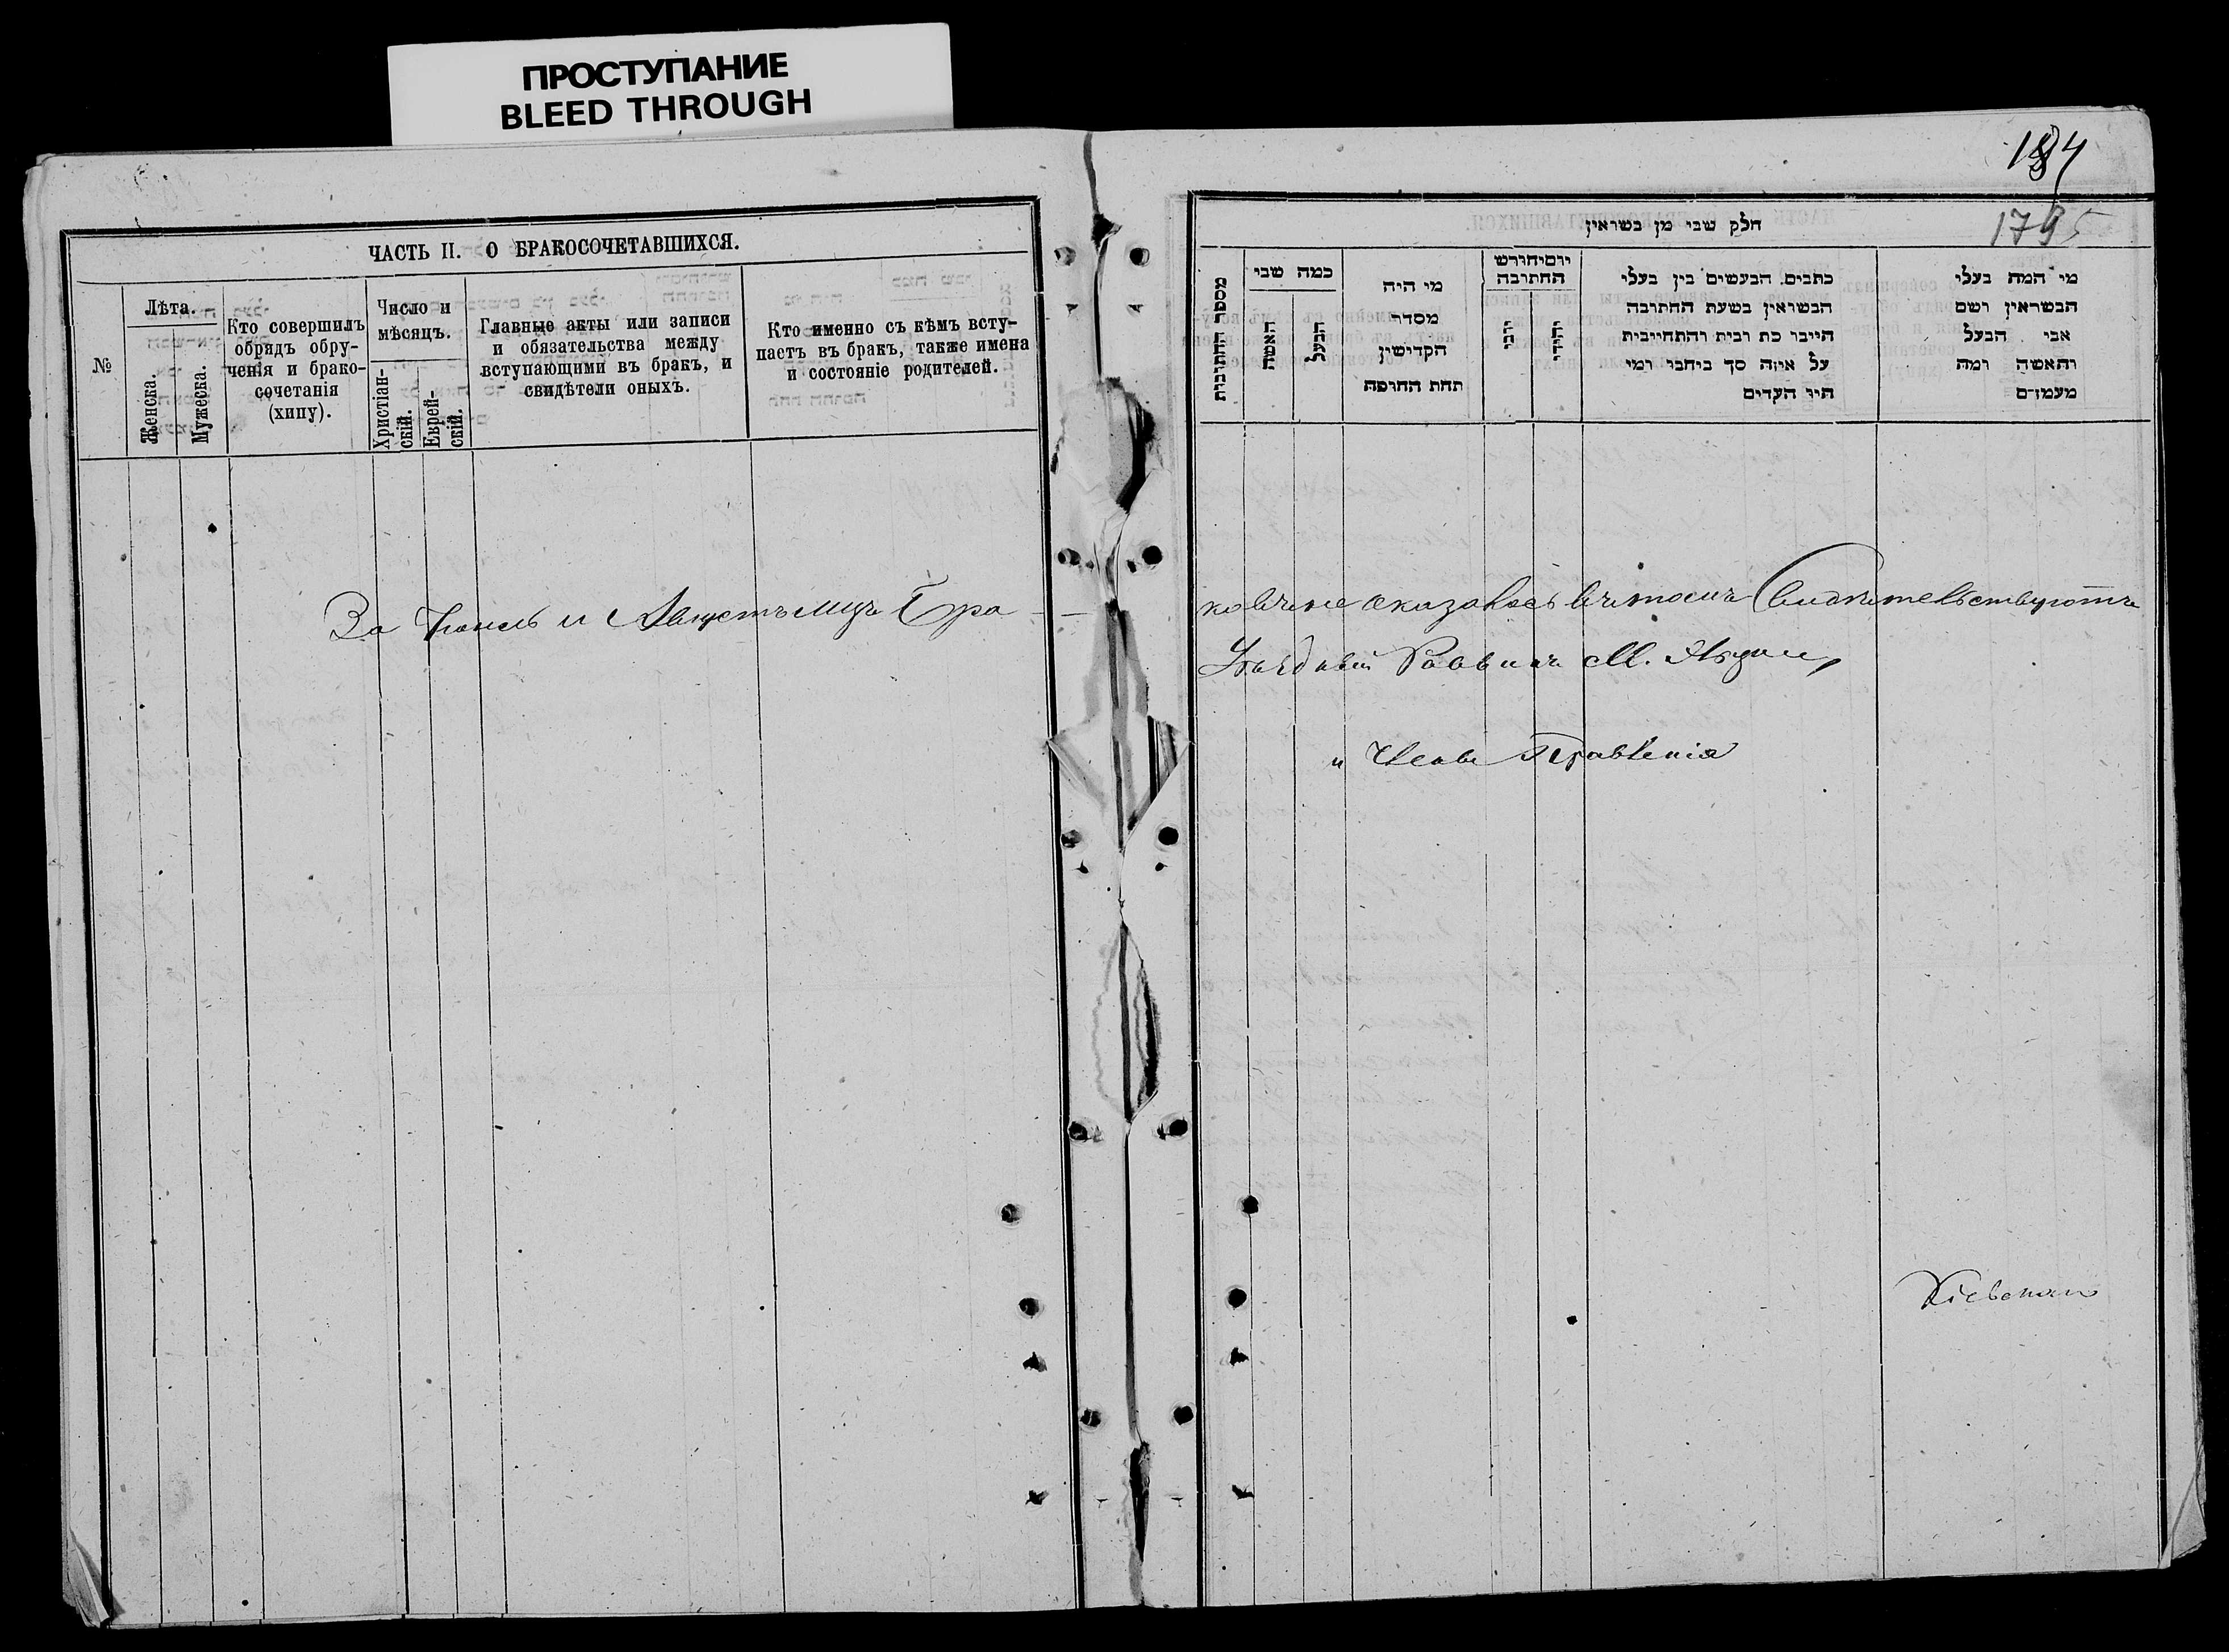 ПРОСТУПАНИЕ
BLEED THROUGH
184
179
ЧАСТЬ II. О БРАКОСОЧЕТАВШИХСЯ.
№
Лѣта.
Женска.
Мужеска.
Кто совершилъ
обрядъ обру-
ченія и брако-
сочетанія
(хипу).
Число и
мѣсяцъ.
Христіан-
скій.
Еврей-
скій.
Главные акты или записи
и обязательства между
вступающими въ бракъ, и
свидѣтели оныхъ.
Кто именно съ кѣмъ всту-
паетъ въ бракъ, также имена
и состояніе родителей.
חלק שני מן נשואין
מספר החתונות
כמה שני
האשה
הבעל
מי היה
מסדר
הקדישין
תחת החופה
יום וחודש
החתונה
יוני
יהודי
כתבים הנעשים בין בעלי
הנשואין בשעת החתונה
היינו כת ובית והתחייבות
על איזה סך ביחבו ומי
היו העדים
מי המה בעלי
הנשואין ושם
אבי הבעל
והאשה ומה
מעמדם
За Іюль и Августъ мцъ Бра
ковъ не оказалось въ томъ Свидѣтельствуютъ
Уѣздный Раввинъ М.
и Члены Правленія